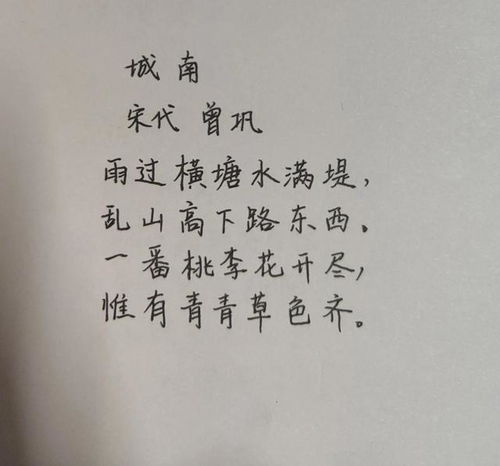 城南
宋代 曾巩
雨过横塘水满堤，
乱山高下路东西。
一番桃李花开尽，
惟有青青草色齐。